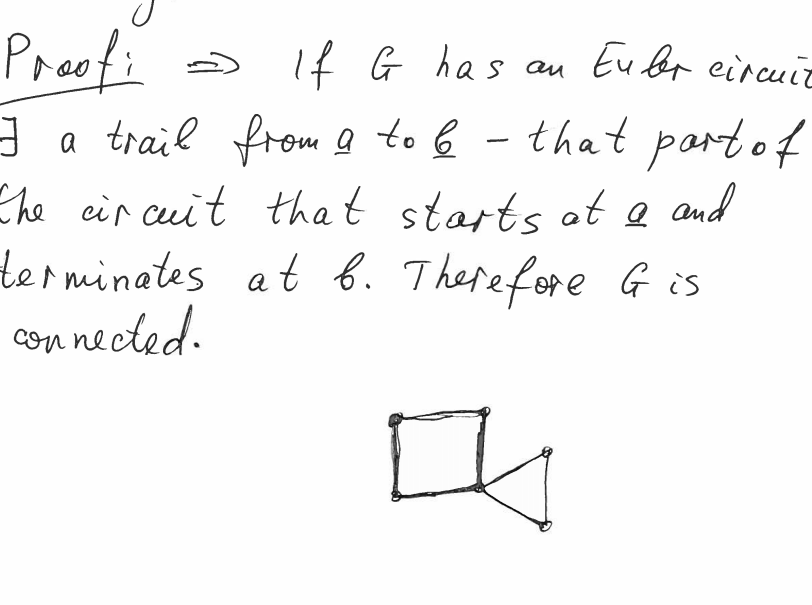 Proof: ⇒ If G has an Euler circuit
∃ a trail from a to b - that part of
the circuit that starts at a and
terminates at b. Therefore G is
connected.